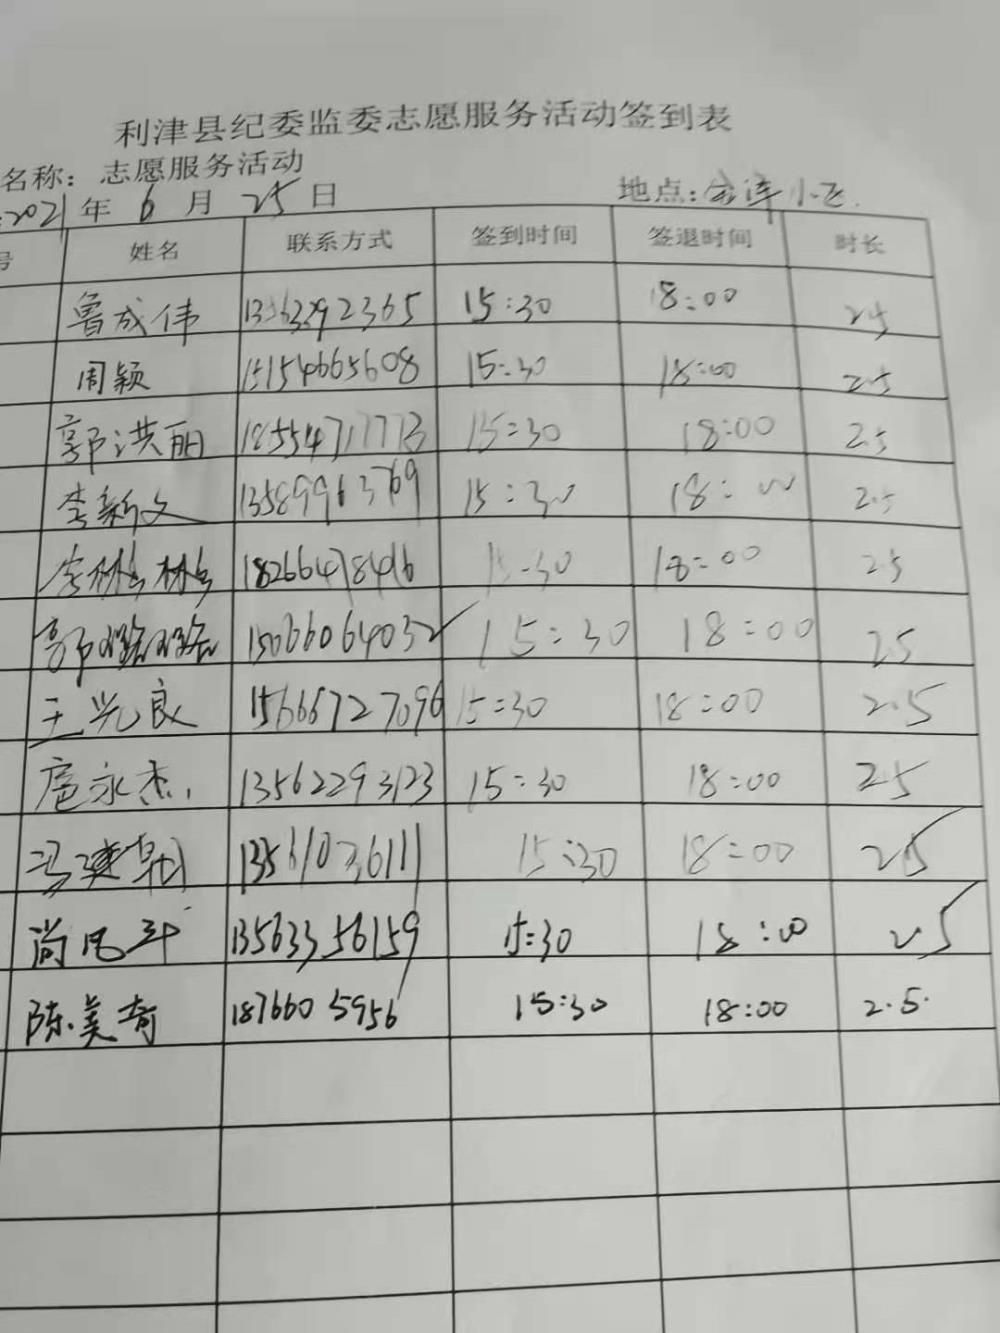 利津县纪委监委志愿服务活动签到表
名称：志愿服务活动
2021年6月25日 地点：小区
号 姓名 联系方式 签到时间 签退时间 时长
鲁成伟 15:30 18:00 2.5
周颖 15154665608 15:30 18:00 2.5
郭洪丽 18554717773 15:30 18:00 2.5
李新文 13589963769 15:30 18:00 2.5
李林林 18266478416 15:30 18:00 2.5
郭璐璐 15066064032 15:30 18:00 2.5
王光良 15666727096 15:30 18:00 2.5
扈永杰 13562293123 15:30 18:00 2.5
冯建朝 13561036111 15:30 18:00 2.5
尚风华 13563356159 15:30 18:00 2.5
陈美奇 1876605956 15:30 18:00 2.5